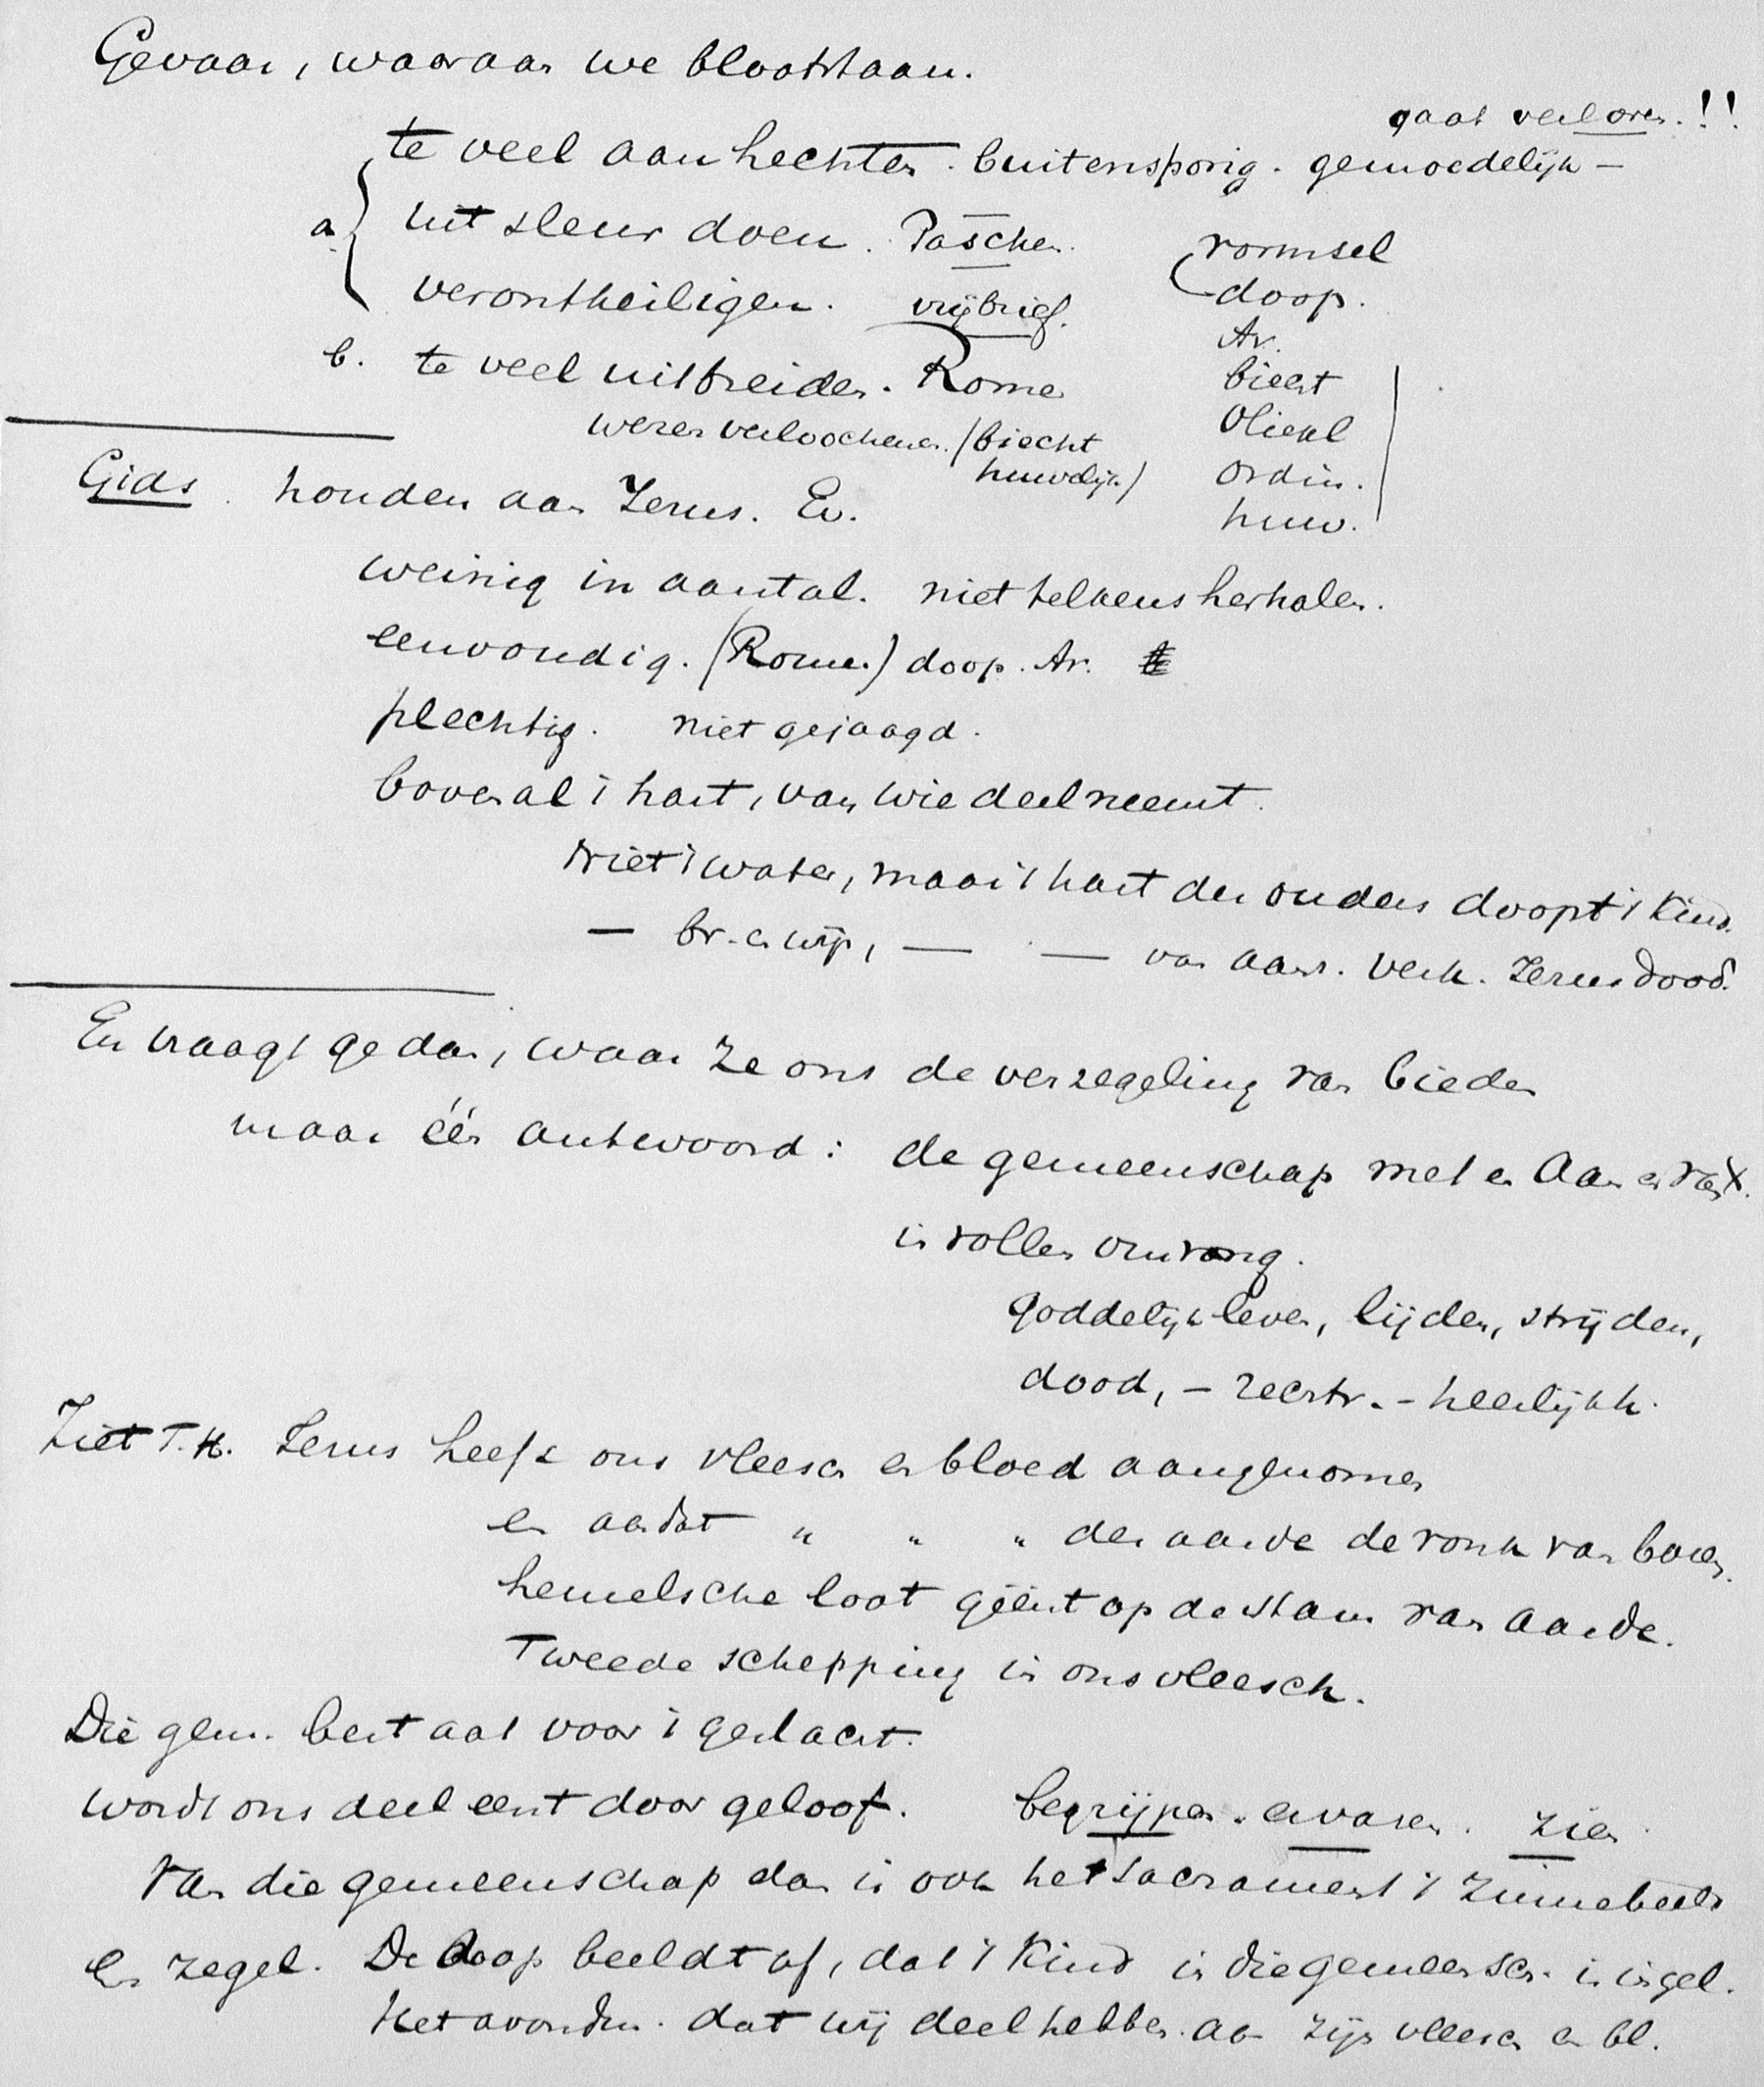 Gevaar, waaraan we blootstaan.
gaat verloren.!!
te veel aan hechten. buitensporig. gemoedelijk —
a. uit sleur doen. Paschen. vormsel
verontheiligen. vrijbrief. doop.
Av.
b. te veel uitbreiden. Rome biecht
wezen verloochenen. (biecht Oliesel
huwelijk) ordin.
Gids. houden aan Jezus. Ev. huw.
weinig in aantal. niet telkens herhalen.
eenvoudig. (Rome.) doop. Av.
plechtig. niet gejaagd.
bovenal 't hart, van wie deelneemt.
Niet 't water, maar 't hart der ouders doopt 't kind.
— br. en wijn, — — van aanz. verk. Jezus dood.
En vraagt ge dan, waar ze ons de verzegeling van bieden
maar één antwoord: de gemeenschap met en aan en van X.
in vollen omvang.
goddelijk leven, lijden, strijden,
dood, – recstr. – heerlijkh.
Ziet T.H. Jezus heeft ons vleesch en bloed aangenomen
en aan dat " " " der aarde de vonk van boven.
hemelsche loot geënt op de stam van aarde.
Tweede schepping in ons vleesch.
Die gem. bestaat voor 't geslacht.
wordt ons deel eerst door geloof. begrijpen. ervaren. zien.
Van die gemeenschap dan is ook het sacrament 't zinnebeeld
en zegel. De doop beeldt af, dat 't kind in die gemeensch. is ingel.
Het avondm. dat wij deel hebben aan zijn vleesch en bl.